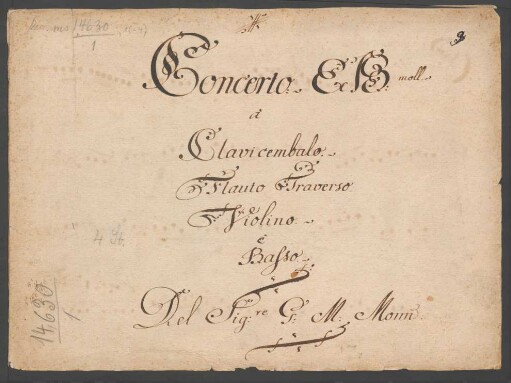 14630
1
Concerto Ex B: moll.
a
Clavicembalo.
Flauto Traverso.
Violino.
è
Basso.
Del Sig:re G: M: Monn.
4 St.
14.630
1